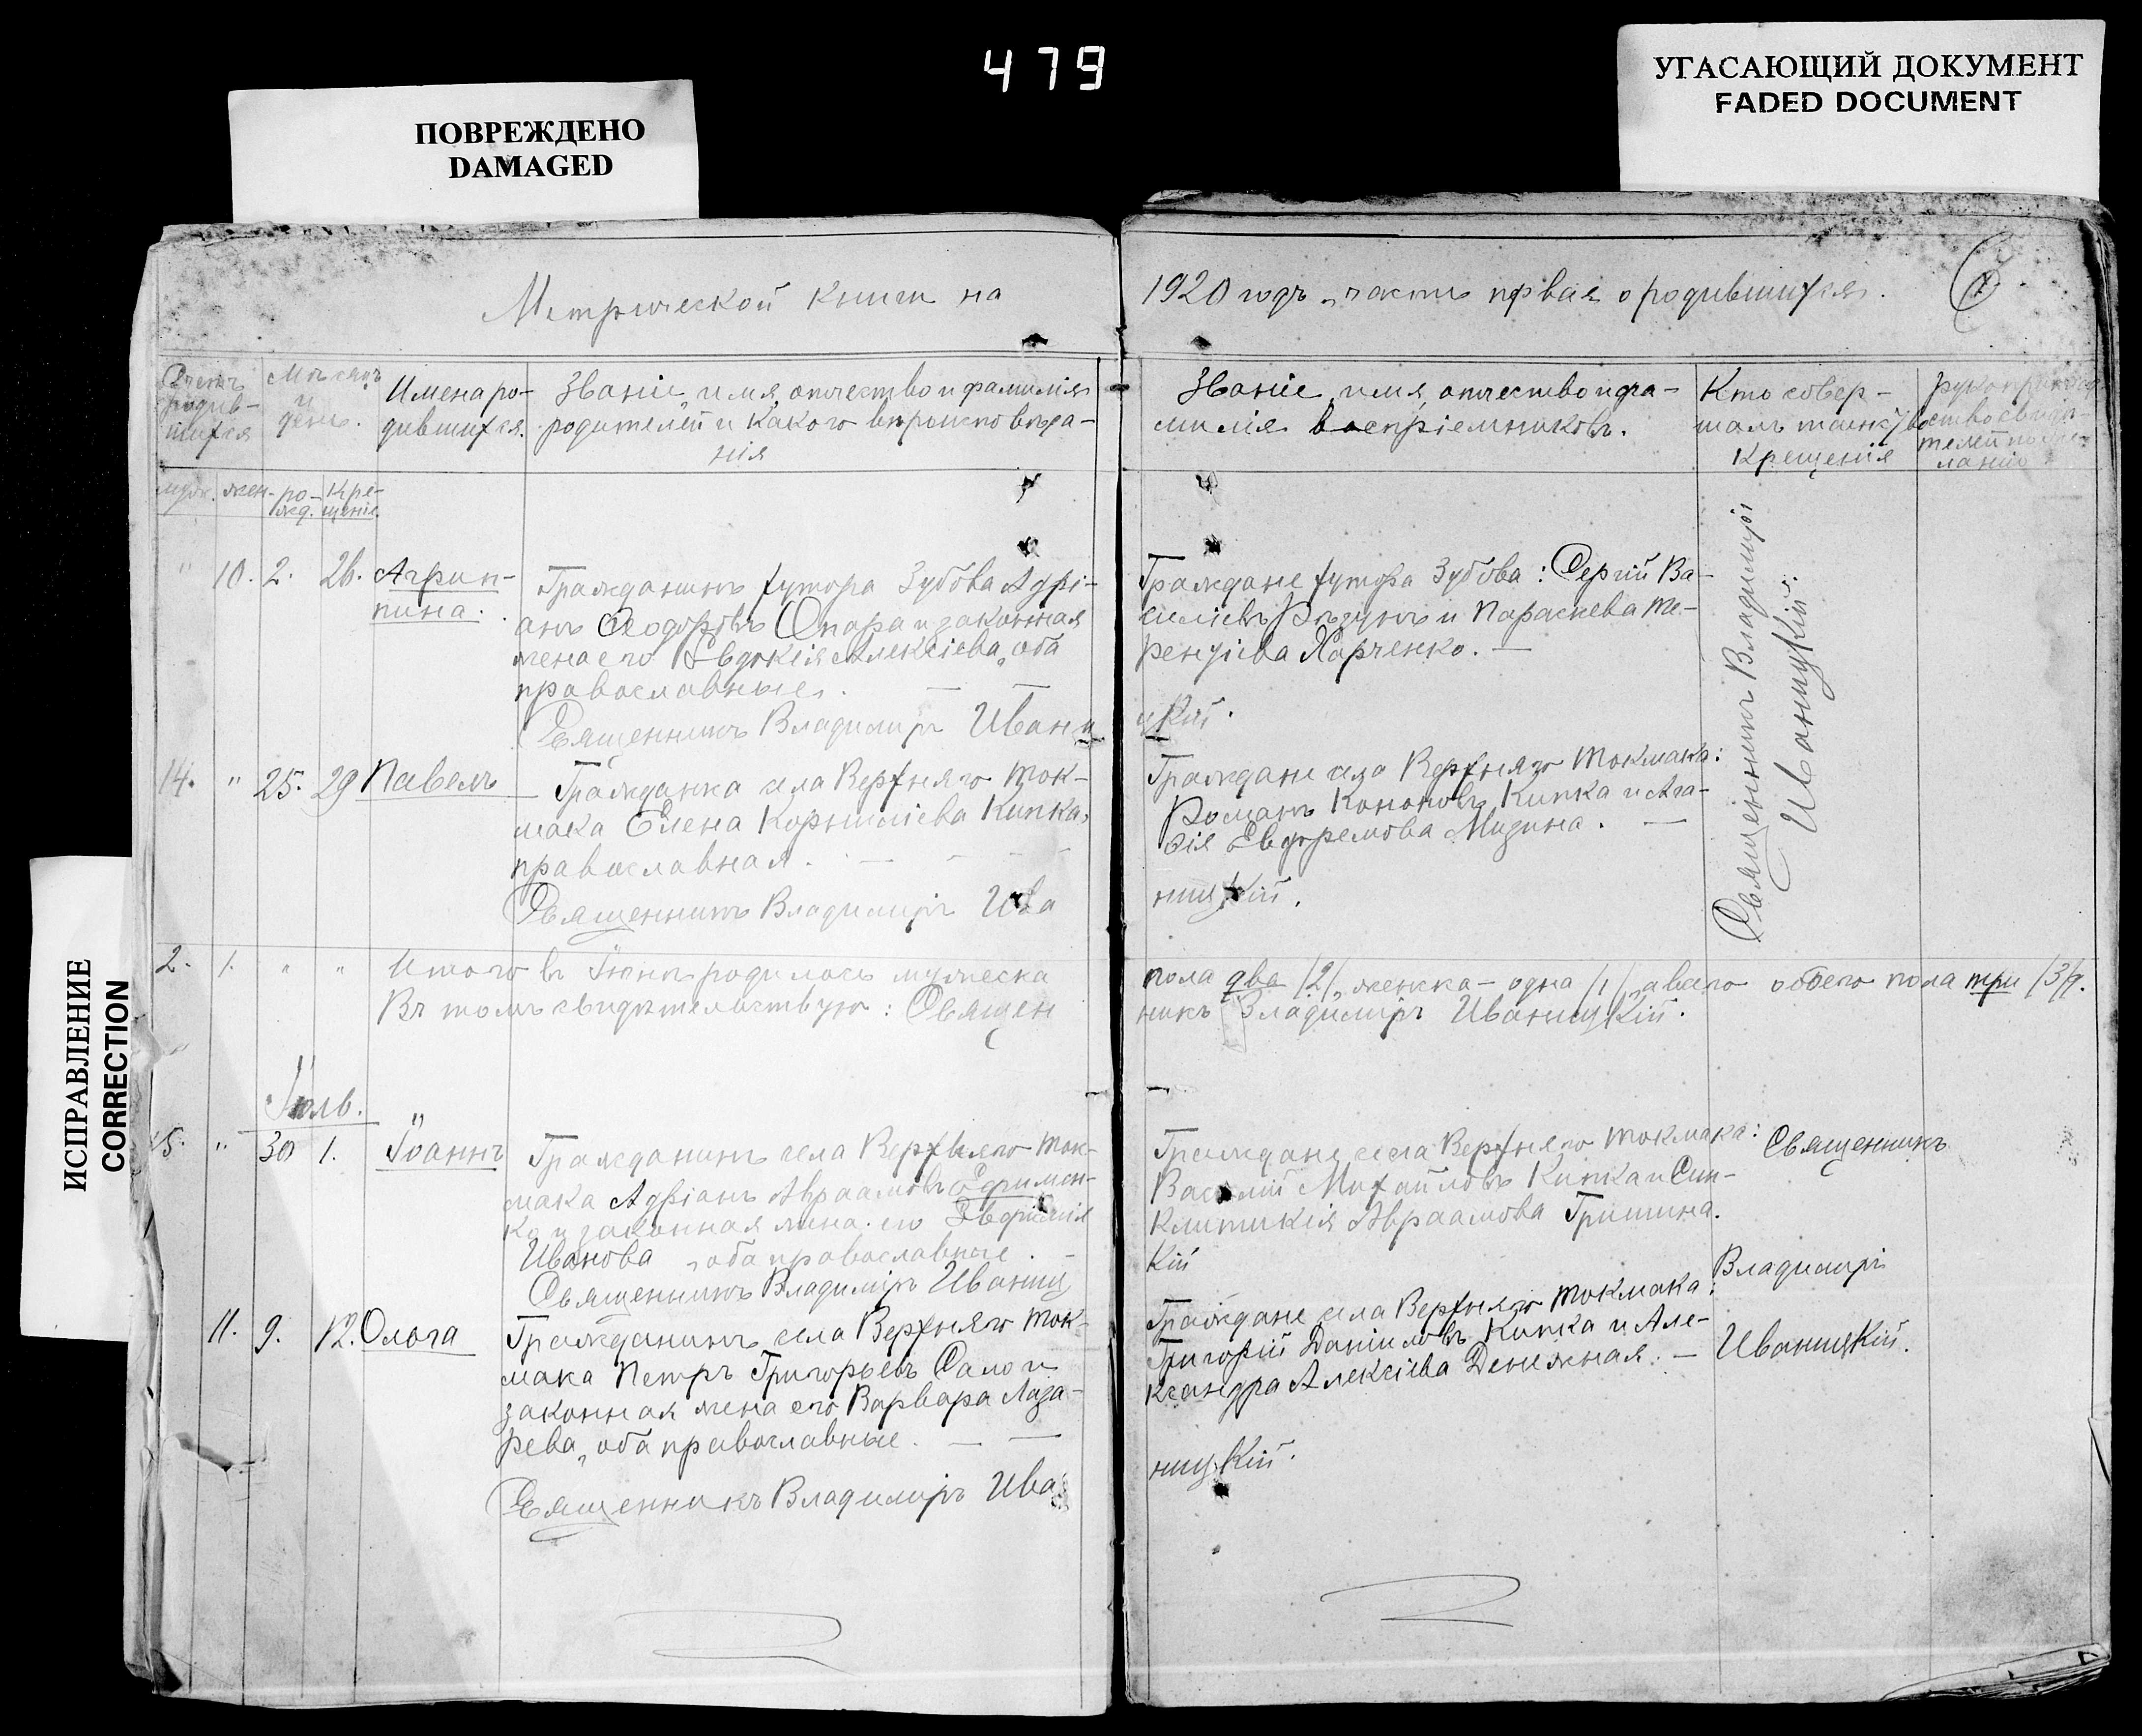 479
ПОВРЕЖДЕНО
DAMAGED
УГАСАЮЩИЙ ДОКУМЕНТ
FADED DOCUMENT
ИСПРАВЛЕНИЕ
CORRECTION
Метрической книги на
1920 годъ, часть первая о родившихся.
Счетъ родив-шихся
Мѣсяцъ и день.
Имена ро-
дившихся.
Званіе, имя, отчество и фамилія
родителей и какого вѣроисповѣда-
нія
Званіе, имя, отчество и фа-
милія воспріемниковъ.
Кто совер-
шалъ таинство
Крещенія
муж. жен. рожд. Кре-щенія.
" 10. 2. 26. Агрип-
пина.
Гражданинъ хутора Зубова Адрі-
анъ Ѳеодоровъ Опара и законная
жена его Евдокія Алексіева, оба
православные.
Священникъ Владиміръ Ивани
Граждане хутора Зубова: Сергій Ва-
силіевъ Рѣзунъ и Параскева Те-
рентіева Харченко. —
цкій.
Священникъ Владиміръ
Иваницкій.
14. " 25. 29 Павелъ
Гражданка села Верхняго Ток-
мака Елена Корниліева Кипка,
православная.
Священникъ Владиміръ Ива
Граждане села Верхняго Токмака:
Романъ Кононовъ Кипка и Ага-
ѳія Евфремова Мизина. —
ницкій.
2. 1. " " Итого въ Іюнѣ родилось мужеска
пола два /2/, женска – одна /1/, а всего обоего пола три /3/.
Въ томъ свидѣтельствую: Священ
никъ Владиміръ Иваницкій.
Іюль.
15. " 30 1. Іоаннъ
Гражданинъ села Верхняго Ток-
мака Адріанъ Авраамовъ Ефимен-
ко и законная жена его Евфимія
Иванова, оба православные. –
Священникъ Владиміръ Иваниц
Граждане села Верхняго Токмака:
Василій Михайловъ Кипка и Син-
клитикія Авраамова Гришина.
кій
Священникъ
Владиміръ
Иваницкій.
11. 9. 12. Ольга
Гражданинъ села Верхняго Ток-
мака Петръ Григорьевъ Сало и
законная жена его Варвара Лаза-
рева, оба православные. — —
Священникъ Владиміръ Ива
Граждане села Верхняго Токмака:
Григорій Даніиловъ Кипка и Але-
ксандра Алексіева Денежная. —
ницкій.